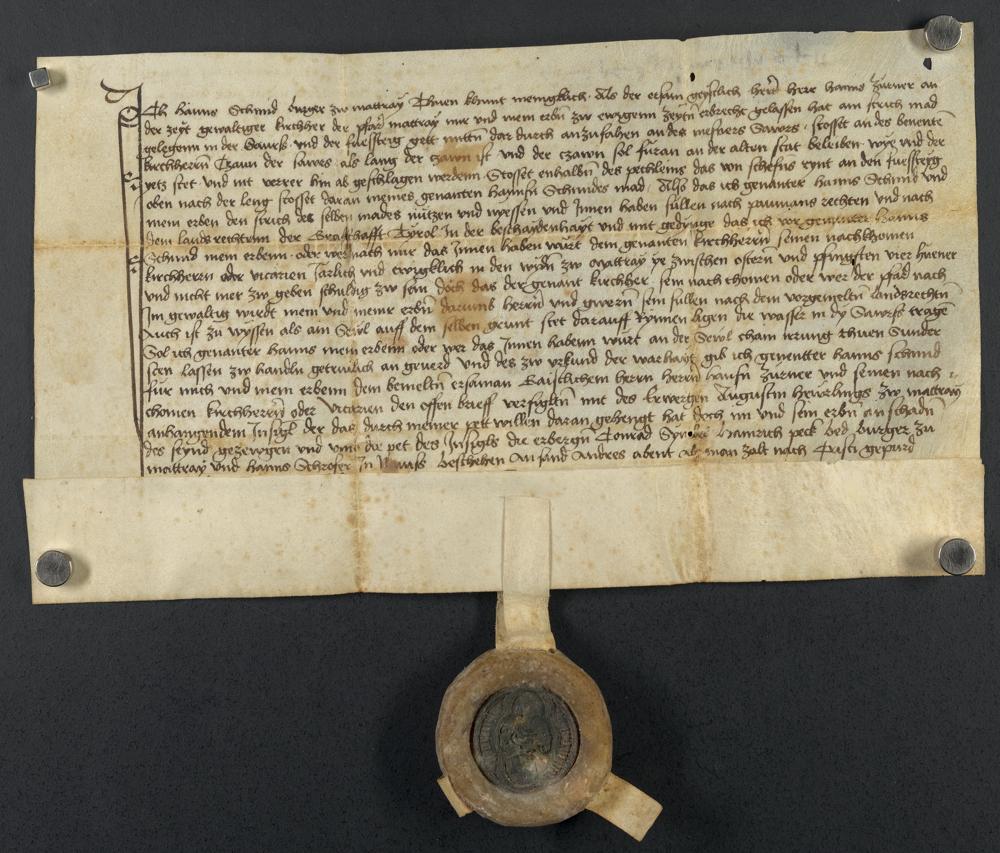 Ich Hanns Schmid burger zw mattray Thuen khunt menigklich Als der ersam geystlich herr herr Hanns Zurner an
der zeyt gewaltiger kirchher der pfarr mattray mir vnd mein erbn zw ewigenn zeytn erbrecht gelassen hat ain strich mad
gelegenn in der Sawrß vnd der fuessteig gett mittn dar durch anzufahen an des mesners Sawrs stosset an des benenten
kirchherrn Traun der sawrs als lang der czawn ist vnd der czawn sol furan an der alten stat beleiben wye vnd der
yetz stet vnd nit verrer hin ab geschlagen werdenn Stosset enhalbn des pechleins das von schefins rynt an den fuessteyg
oben nach der leng stosset daran meines genanten Hannsn Schmides mad Also das ich genanter Hanns Schmid vnd
mein erben den strich des selben mades nützen vnd nyessen vnd Innen haben süllen nach paumans rechten vnd nach
dem lands rechtenn der Graffschafft Tyrol In der beschaydenhayt vnd mit gedinge das ich vor genanter Hanns
Schmid mein erbenn oder wer nach mir das Innen haben wurt dem genanten kirchherrn seinen nachkhomen
kirchherrn oder vicarien Jarlich vnd ewigklich in den widn zw Mattray ye zwischen ostern vnd pfingsten vier huener
vnd nicht mer zw geben schuldig zw sein doch das der genant kirchher sein nachchomen oder wer der pfarr nach
Im gewaltig wirdt mein vnd meinr erbn darumb herrn vnd gwern sein süllen nach dem vorgemeltn landsrechtn
Auch ist zu wyssen als ain Seyl auff dem selben grunt stet darauff Rynnen ligen die wasser in dy Sawrß trage
Sol ich genanter Hanns mein erbenn oder wer das Innen habenn wurt an der Seyl chain irrung thuen Sunder
sten lassen zw handln getreulich an geuerd Vnd des zw vrkund der warhayt gib ich genenter Hanns Schmid
für mich vnd mein erbenn dem bemeltn ersaman Gaistlichem herrn herrn Hansn Zurner vnd seinen nach
chomen kirchherrn oder vicarien den offen brieff versigltn mit des Erwergen Augustin Hewrlings zw mattray
anhangendem Insigl der das durch meiner pett willen daran gehengt hat doch im vnd sein erbn an schadn
des seynd gezewgen vnd vmb der pet des Insigls die erbergn Conrad Hainrich peck bed burger zu
mattray vnd Hanns Schrofer In Nauiß Beschehen An sand Andres abent als man zalt nach Cristi gepurd